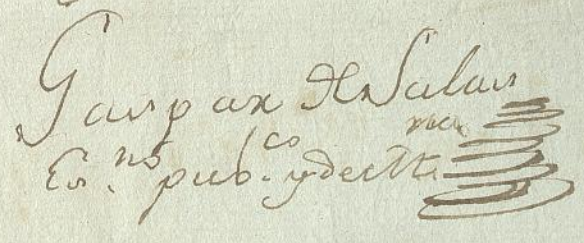 Gaspar de Salas
Es.no pub.co y de